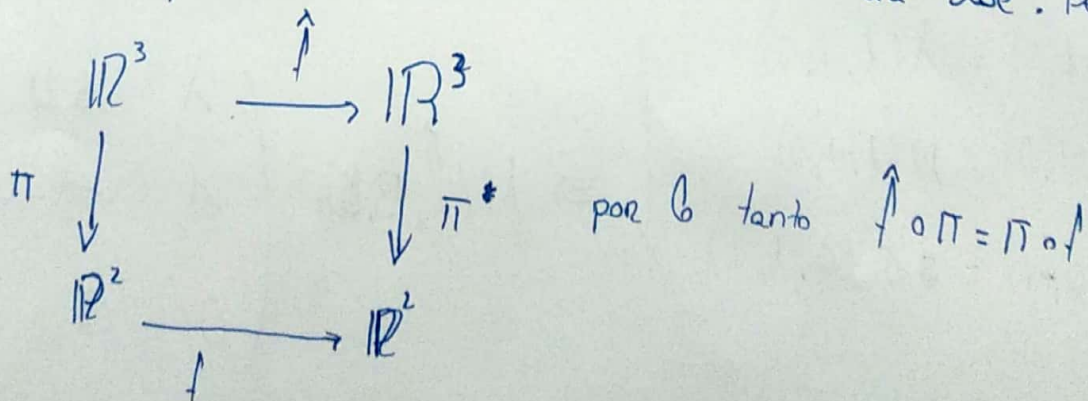 ℝ³ f̂ ℝ³
π π* por lo tanto f̂ ∘ π = π ∘ f
ℙ² ℙ²
f